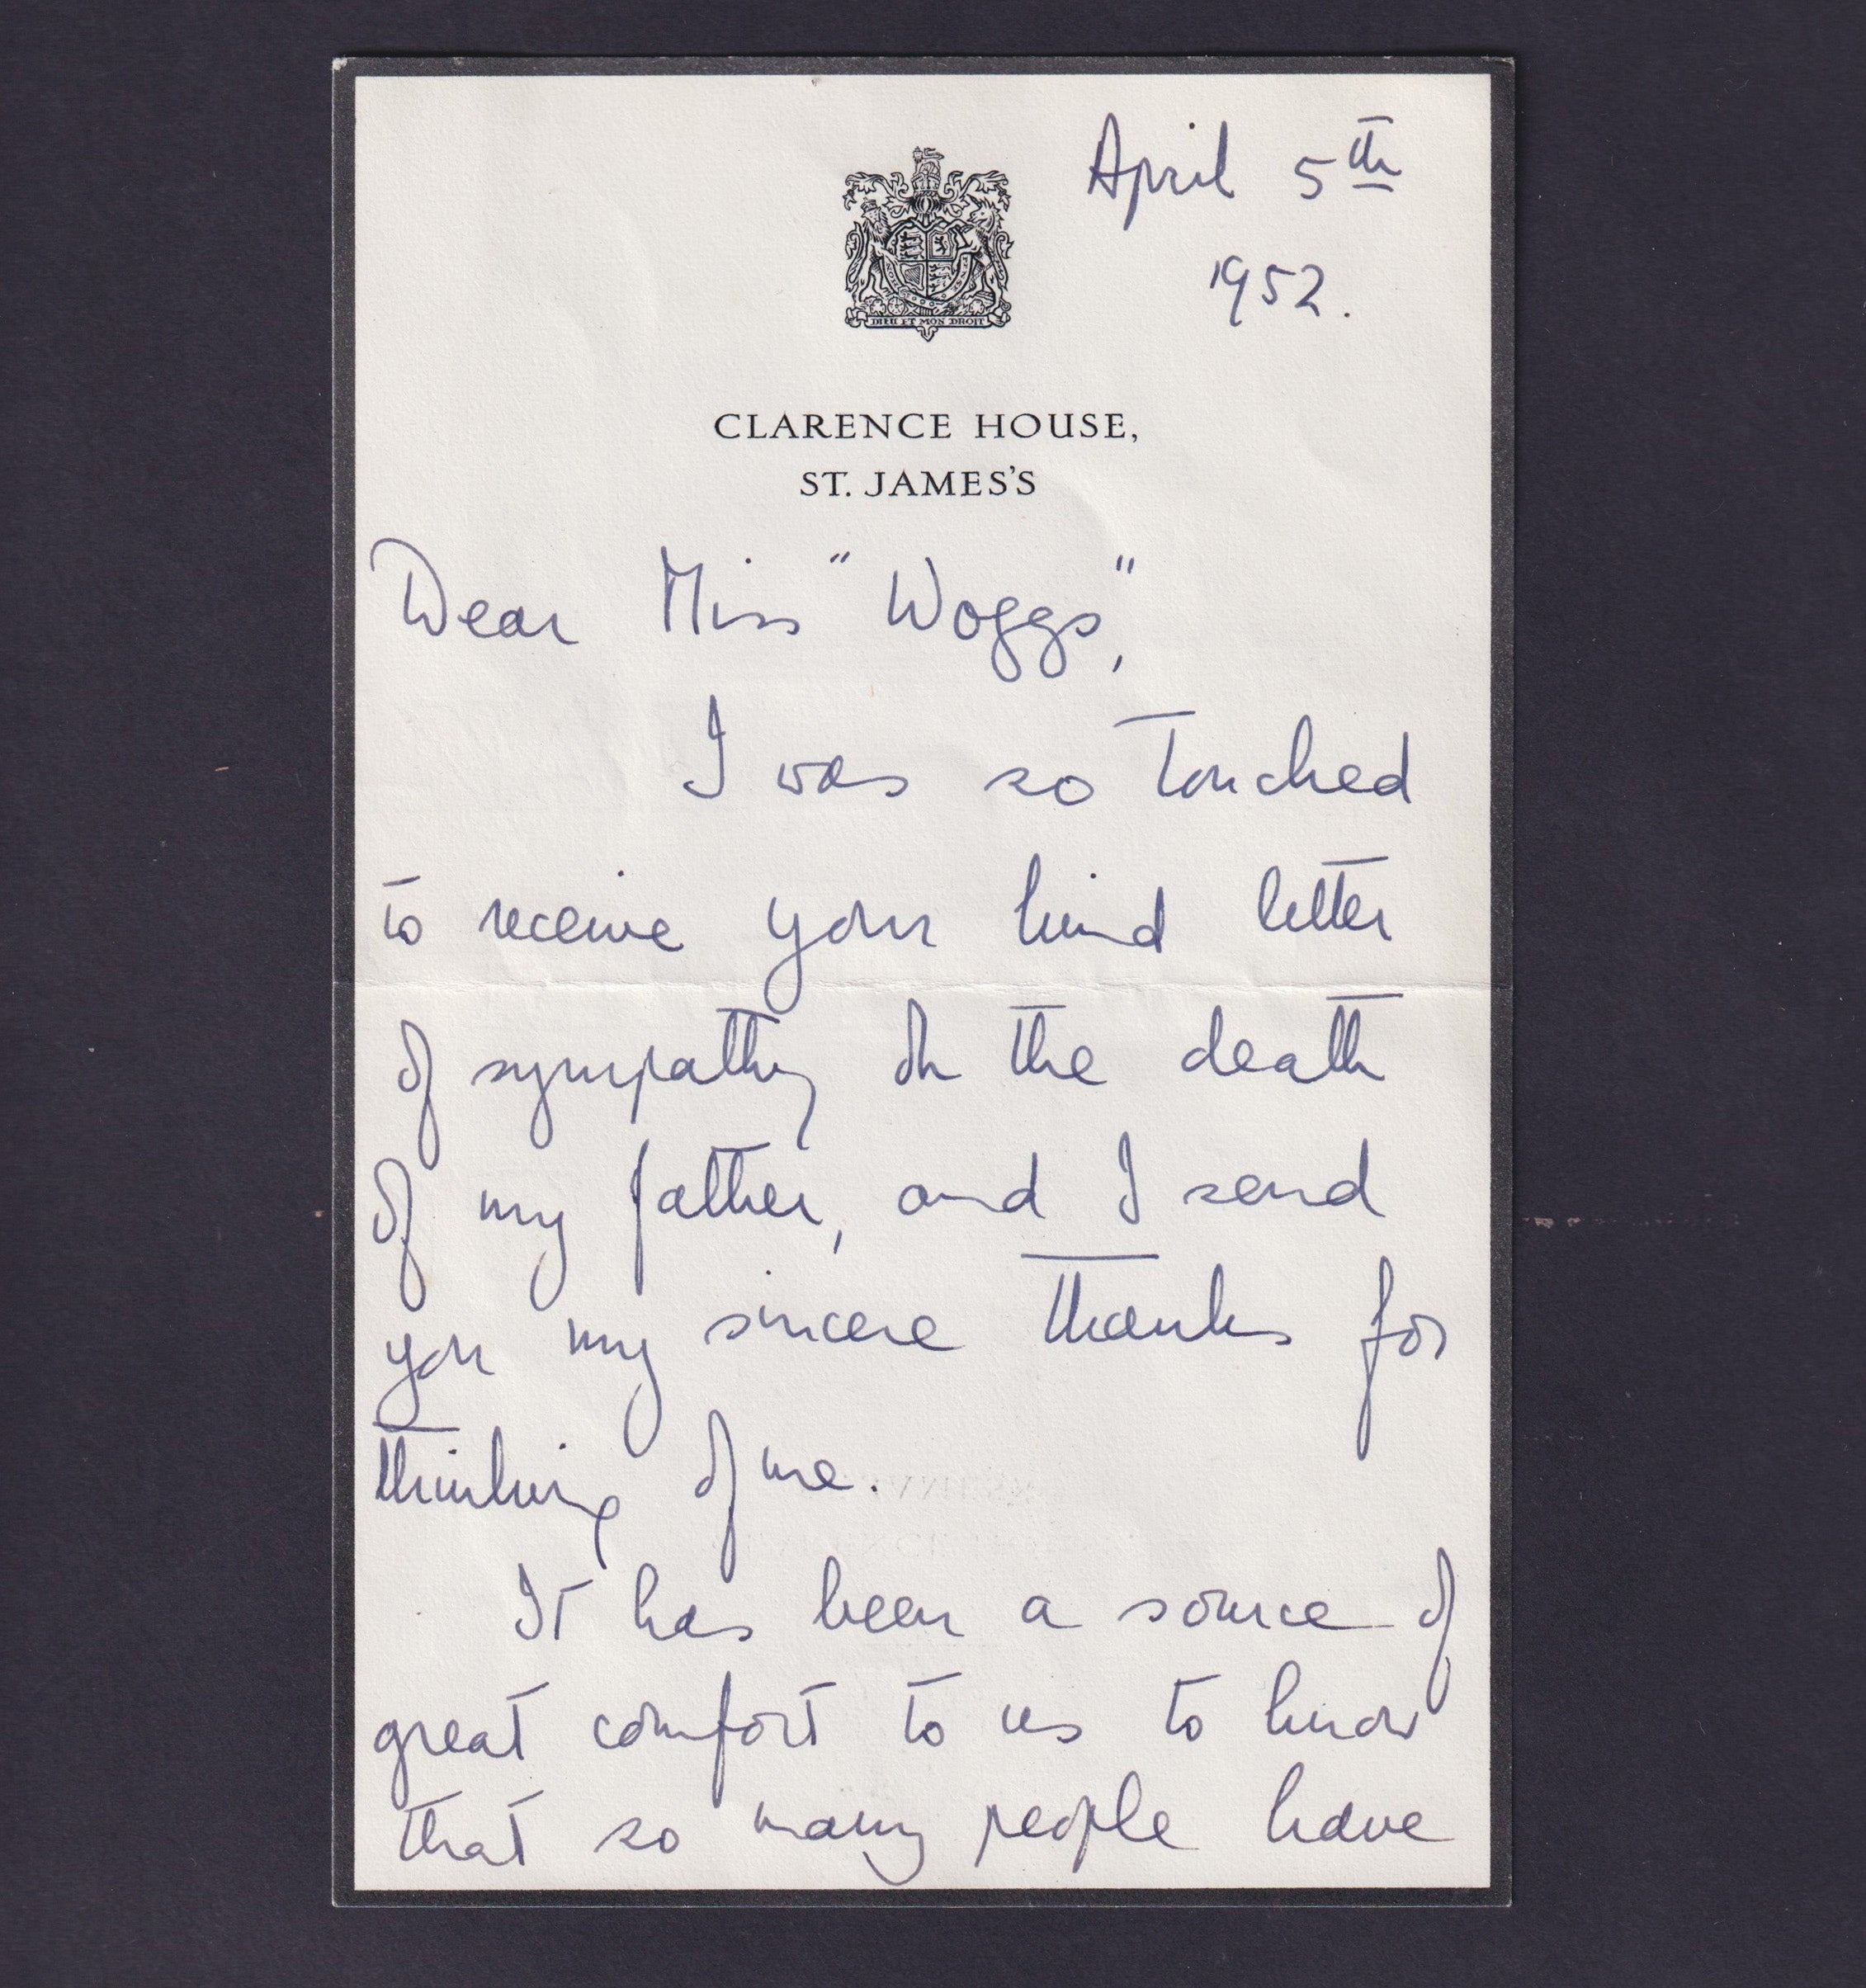 April 5th
1952.
DIEU ET MON DROIT
CLARENCE HOUSE,
ST. JAMES'S
Dear Miss "Woggs",
I was so touched
to receive your kind letter
of sympathy on the death
of my father, and I send
you my sincere thanks for
thinking of me.
It has been a source of
great comfort to us to know
that so many people have